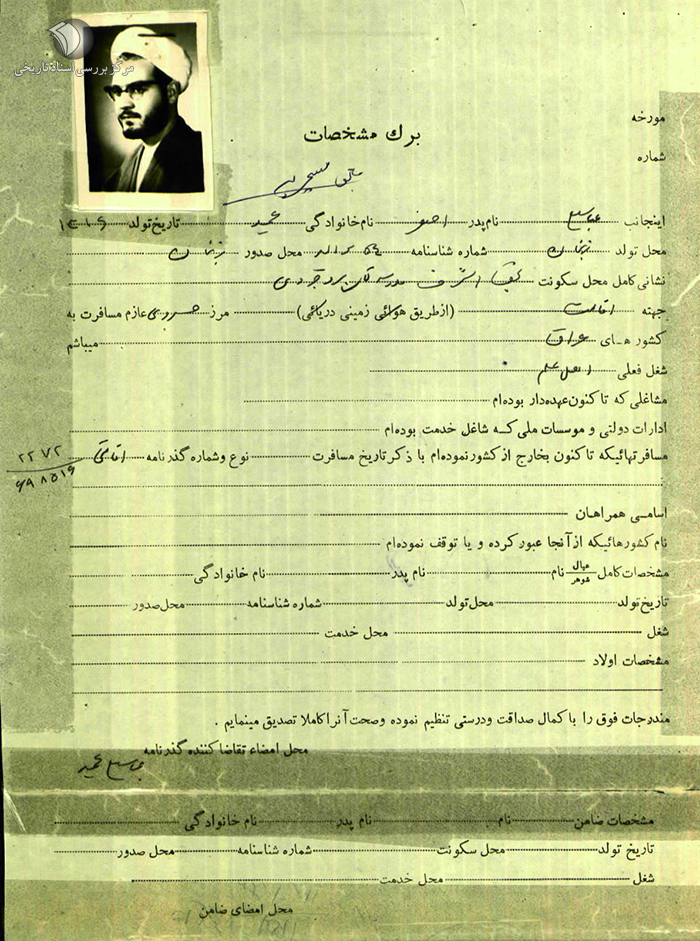 مرکز بررسی اسناد تاریخی
مورخه
برگ مشخصات
شماره
اینجانب عباسعلی نام پدر اصغر نام خانوادگی عمید تاریخ تولد
محل تولد زنجان شماره شناسنامه محل صدور زنجان
نشانی کامل محل سکونت نجف اشرف مدرسه
جهته اقامت (از طریق هوائی زمینی دریائی) مرز خسروی عازم مسافرت به
کشور های عراق میباشم
شغل فعلی اهل علم
مشاغلی که تا کنون عهده‌دار بوده‌ام
ادارات دولتی و موسسات ملی که شاغل خدمت بوده‌ام
مسافرتهائیکه تا کنون بخارج از کشور نموده‌ام با ذکر تاریخ مسافرت نوع و شماره گذرنامه اقامتی ۲۲۷۲
اسامی همراهان
نام کشورهائیکه از آنجا عبور کرده و یا توقف نموده‌ام
مشخصات کامل عیال شوهر نام نام پدر نام خانوادگی
تاریخ تولد محل تولد شماره شناسنامه محل صدور
شغل محل خدمت
مشخصات اولاد
مندرجات فوق را با کمال صداقت و درستی تنظیم نموده و صحت آنرا کاملا تصدیق مینمایم .
محل امضاء تقاضا کننده گذرنامه
مشخصات ضامن نام نام پدر نام خانوادگی
تاریخ تولد محل سکونت شماره شناسنامه محل صدور
شغل محل خدمت
محل امضای ضامن